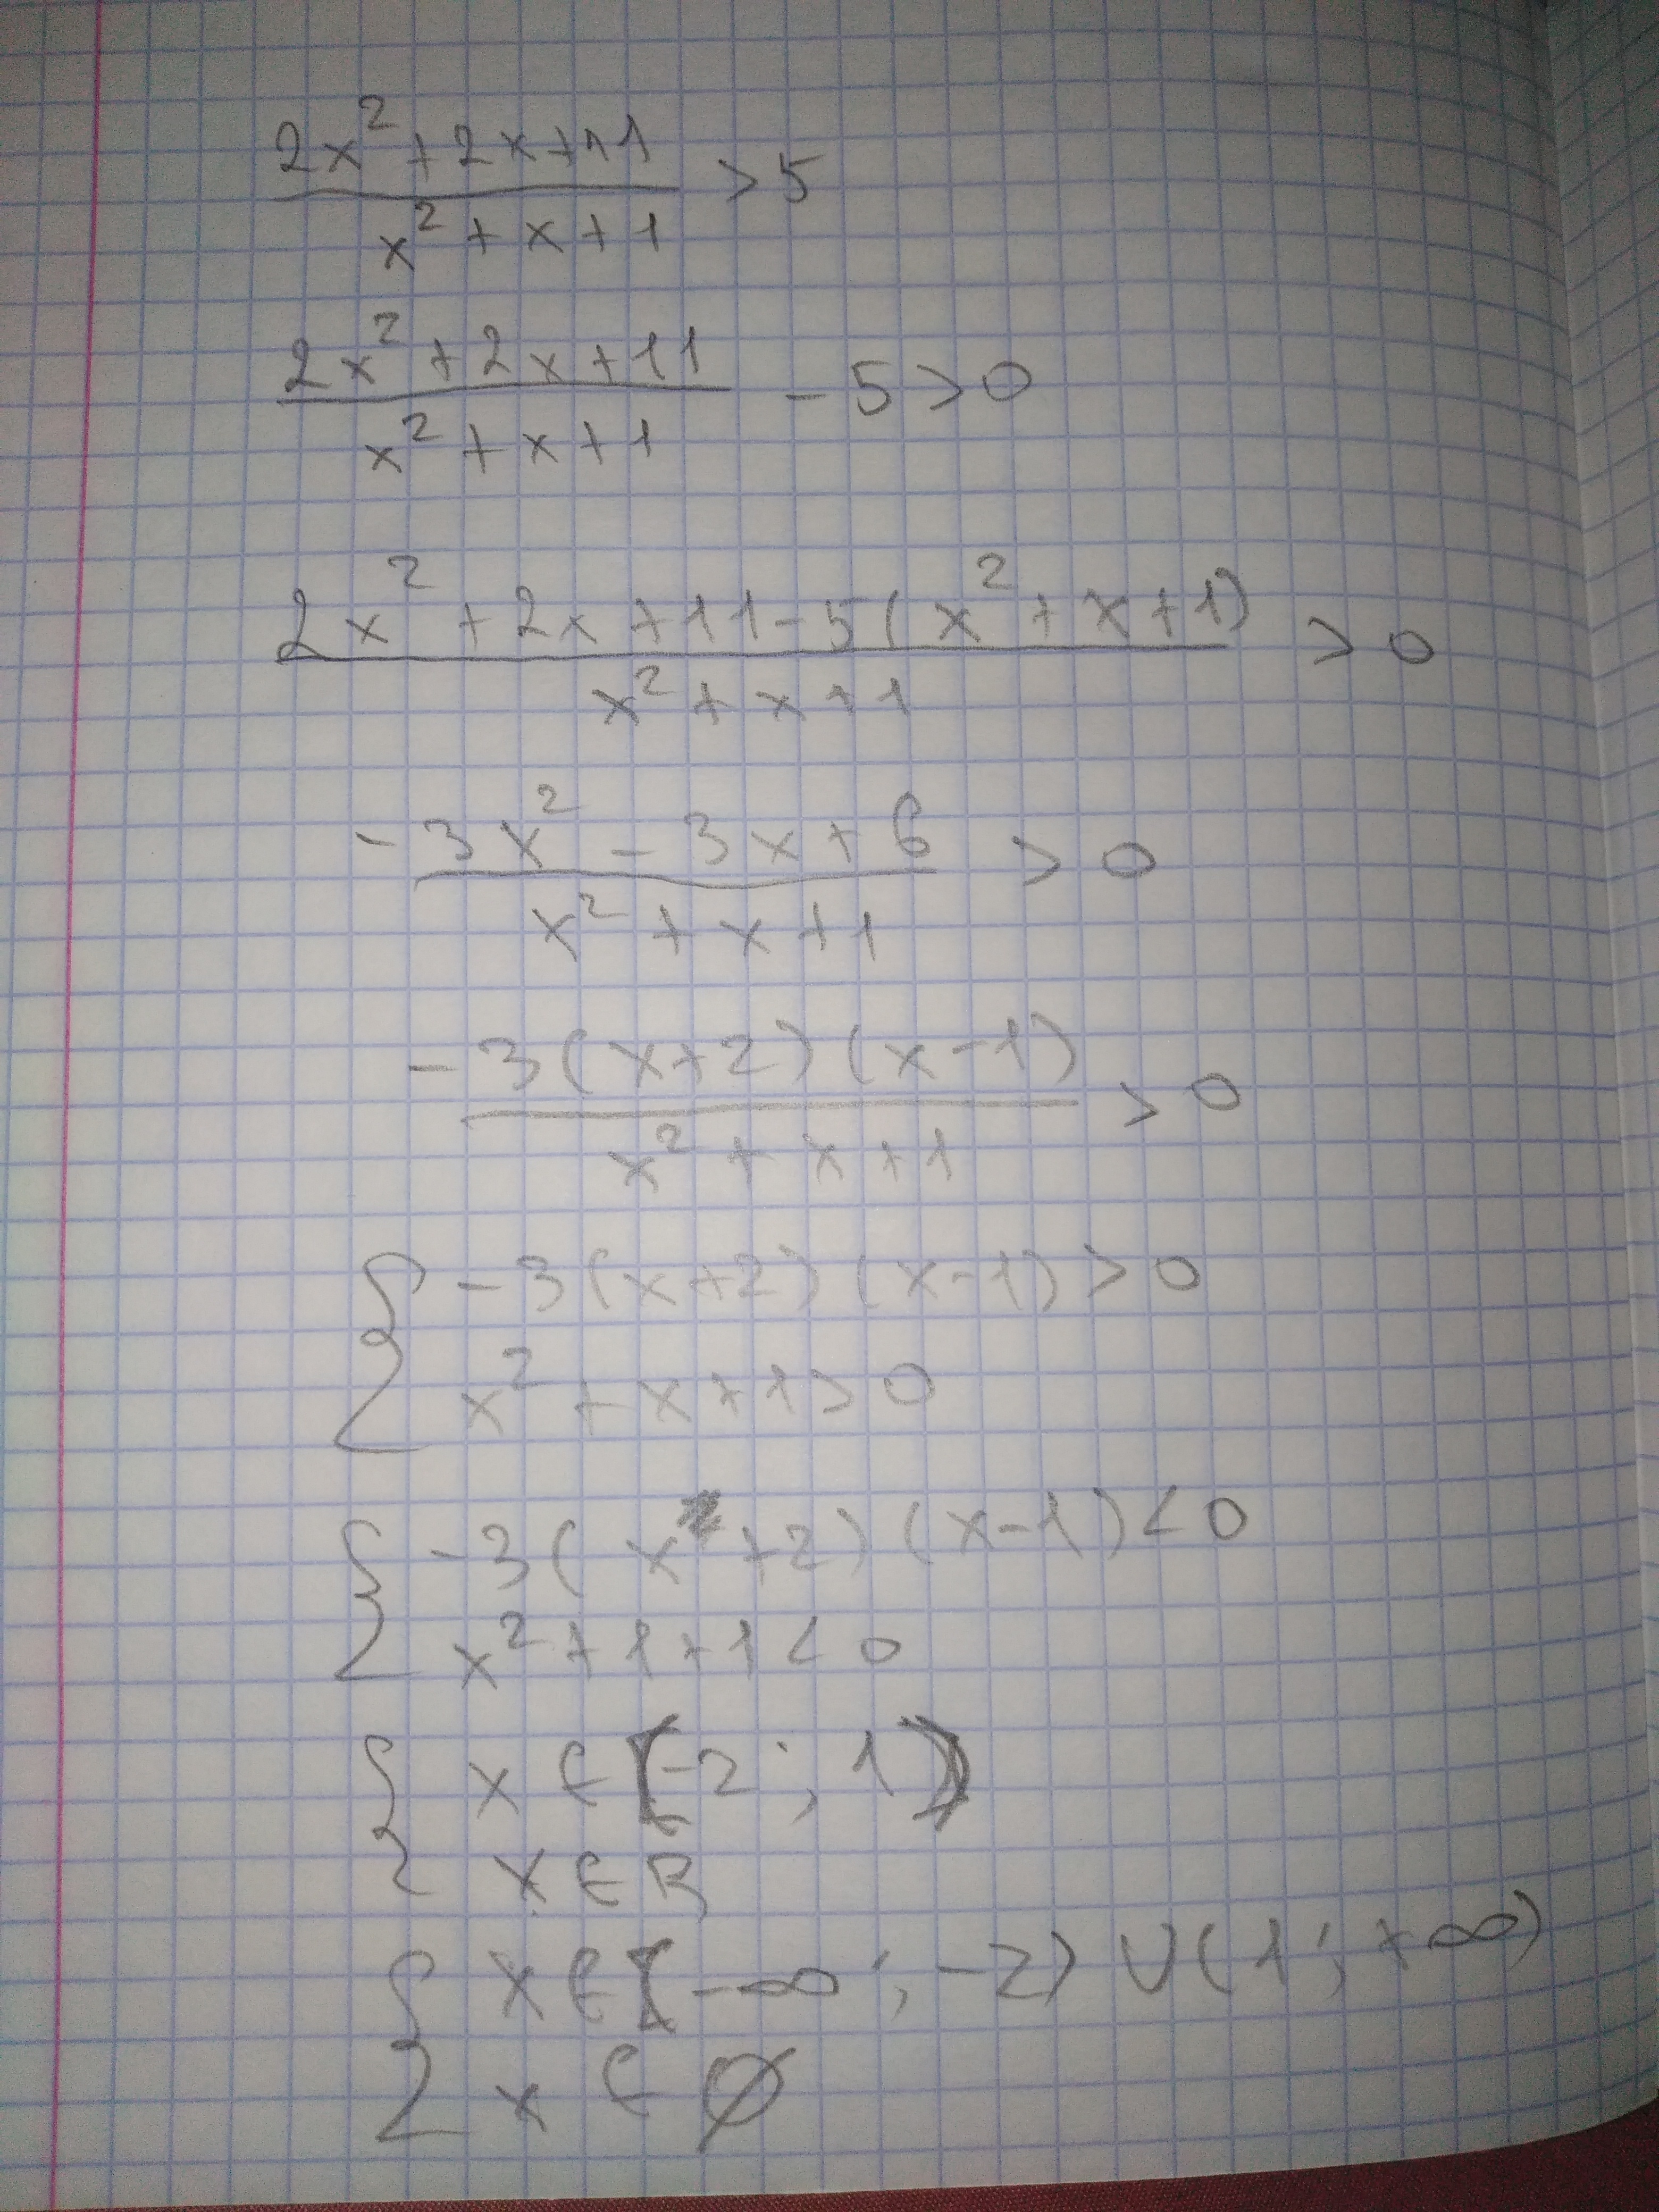 (2x²+2x+11)/(x²+x+1) > 5
(2x²+2x+11)/(x²+x+1) - 5 > 0
(2x²+2x+11-5(x²+x+1))/(x²+x+1) > 0
(-3x²-3x+6)/(x²+x+1) > 0
(-3(x+2)(x-1))/(x²+x+1) > 0
{ -3(x+2)(x-1) > 0
x²+x+1 > 0
{ -3(x+2)(x-1) < 0
x²+1+1 < 0
{ x ∈ (-2; 1)
x ∈ R
{ x ∈ (-∞; -2) ∪ (1; +∞)
x ∈ ∅